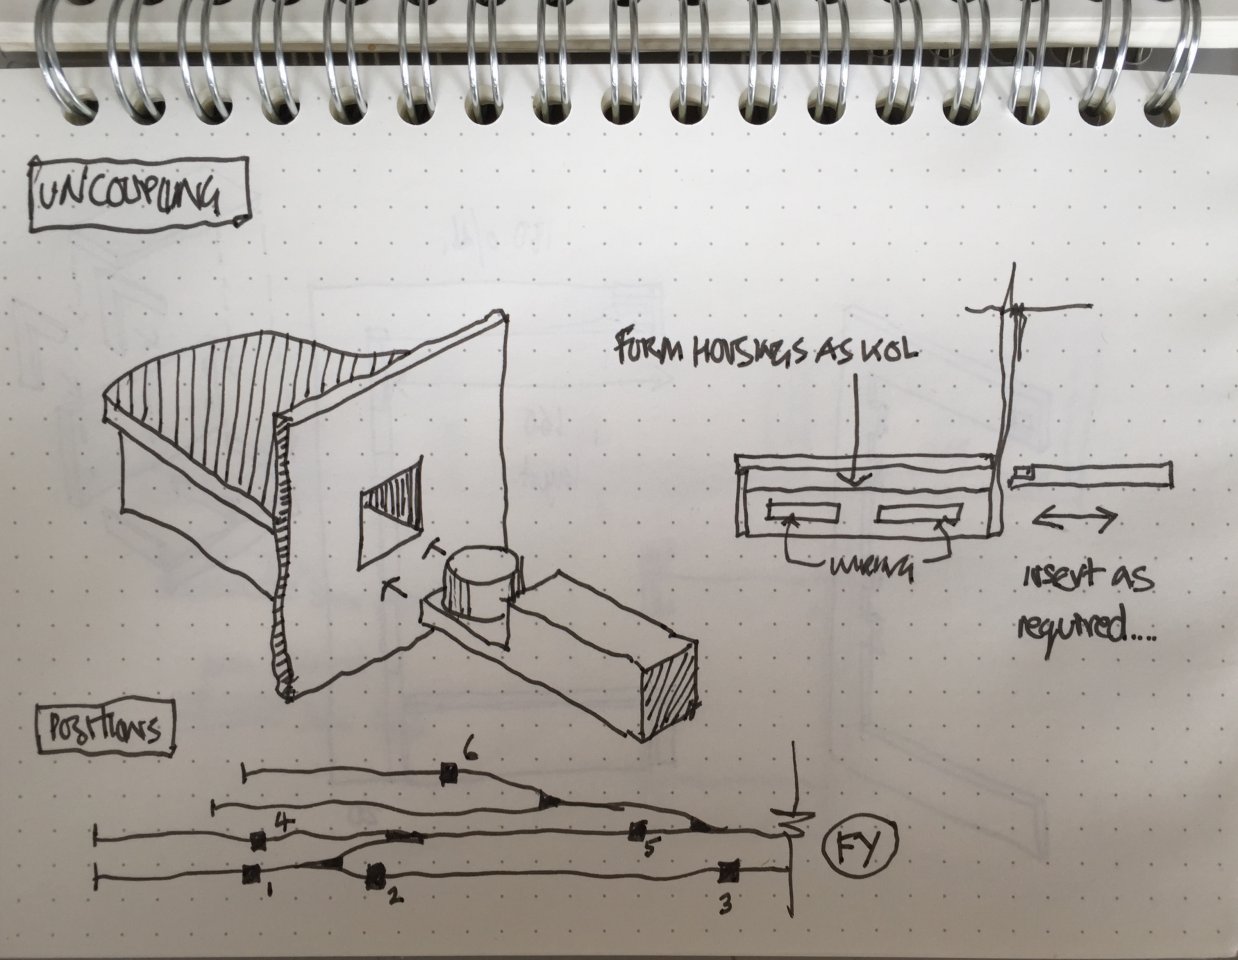 UNCOUPLING
FORM HOUSINGS AS KOL
WIRING
insert as
required....
POSITIONS
6
4
5
FY
1
2
3